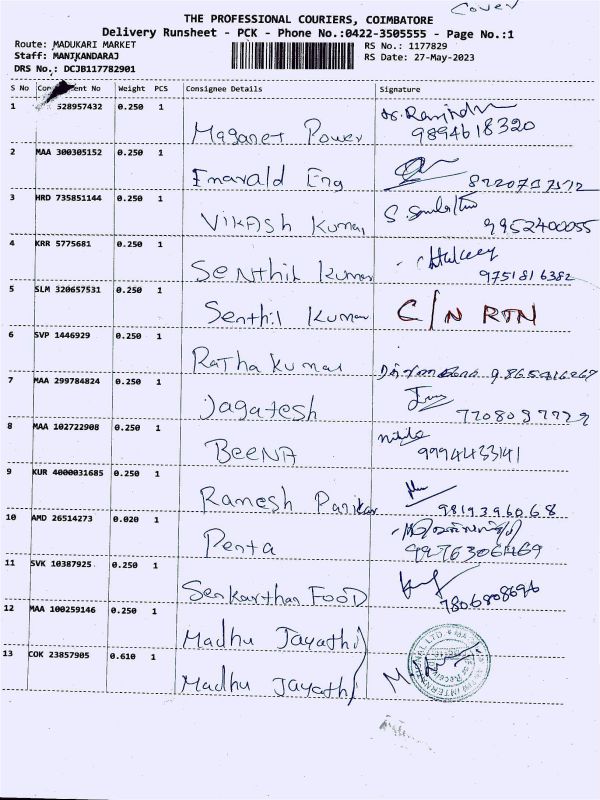 Cover
THE PROFESSIONAL COURIERS, COIMBATORE
Delivery Runsheet - PCK - Phone No.:0422-3505555 - Page No.:1
Route: MADUKARI MARKET
RS No.: 1177829
Staff: MANIKANDARAJ
RS Date: 27-May-2023
DRS No.: DCJB117782901
S No Weight PCS Consignee Details Signature
1 528957432 0.250 1
Maganet Power 9894618320
2 MAA 300305152 0.250 1
Emarald Eng
3 HRD 735851144 0.250 1
Vikash Kumar 9952400055
4 KRR 5775681 0.250 1
Senthil Kumar 9751816382
5 SLM 320657531 0.250 1
Senthil Kumar C/N RTN
6 SVP 1446929 0.250 1
Ratha Kumar
7 MAA 299784824 0.250 1
Jagatesh
8 MAA 102722908 0.250 1
BEENA 9994433141
9 KUR 4000031685 0.250 1
Ramesh 9819396068
10 AMD 26514273 0.020 1
Penta
11 SVK 10387925 0.250 1
Senkarthan FOOD
12 MAA 100259146 0.250 1
Madhu Jayathi
13 COK 23857905 0.610 1
Madhu Jayathi